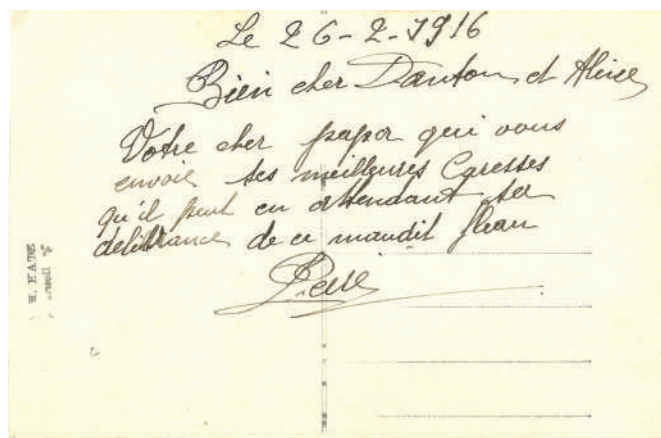 Le 26-2-1916
Bien cher Danton et Alice
Votre cher papa qui vous
envoie ses meilleures Caresses
qu'il peut en attendant sa
delivrance de ce maudit fleau